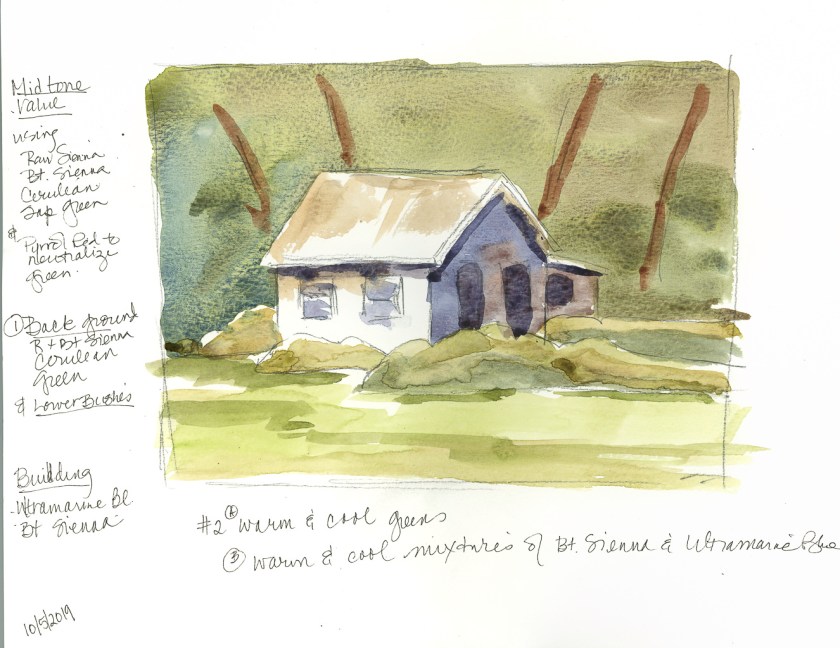 Midtone
Value
using
Raw Sienna
Bt. Sienna
Cerulean
Sap Green
&
Pyrrol Red to
neutralize
green.
① Back ground
R + Bt Sienna
Cerulean
Green
& Lower Bushes
Building
Ultramarine Bl
Bt Sienna
#2 warm & cool greens
③ warm & cool mixtures of Bt. Sienna & Ultramarine Blue
10/5/2019